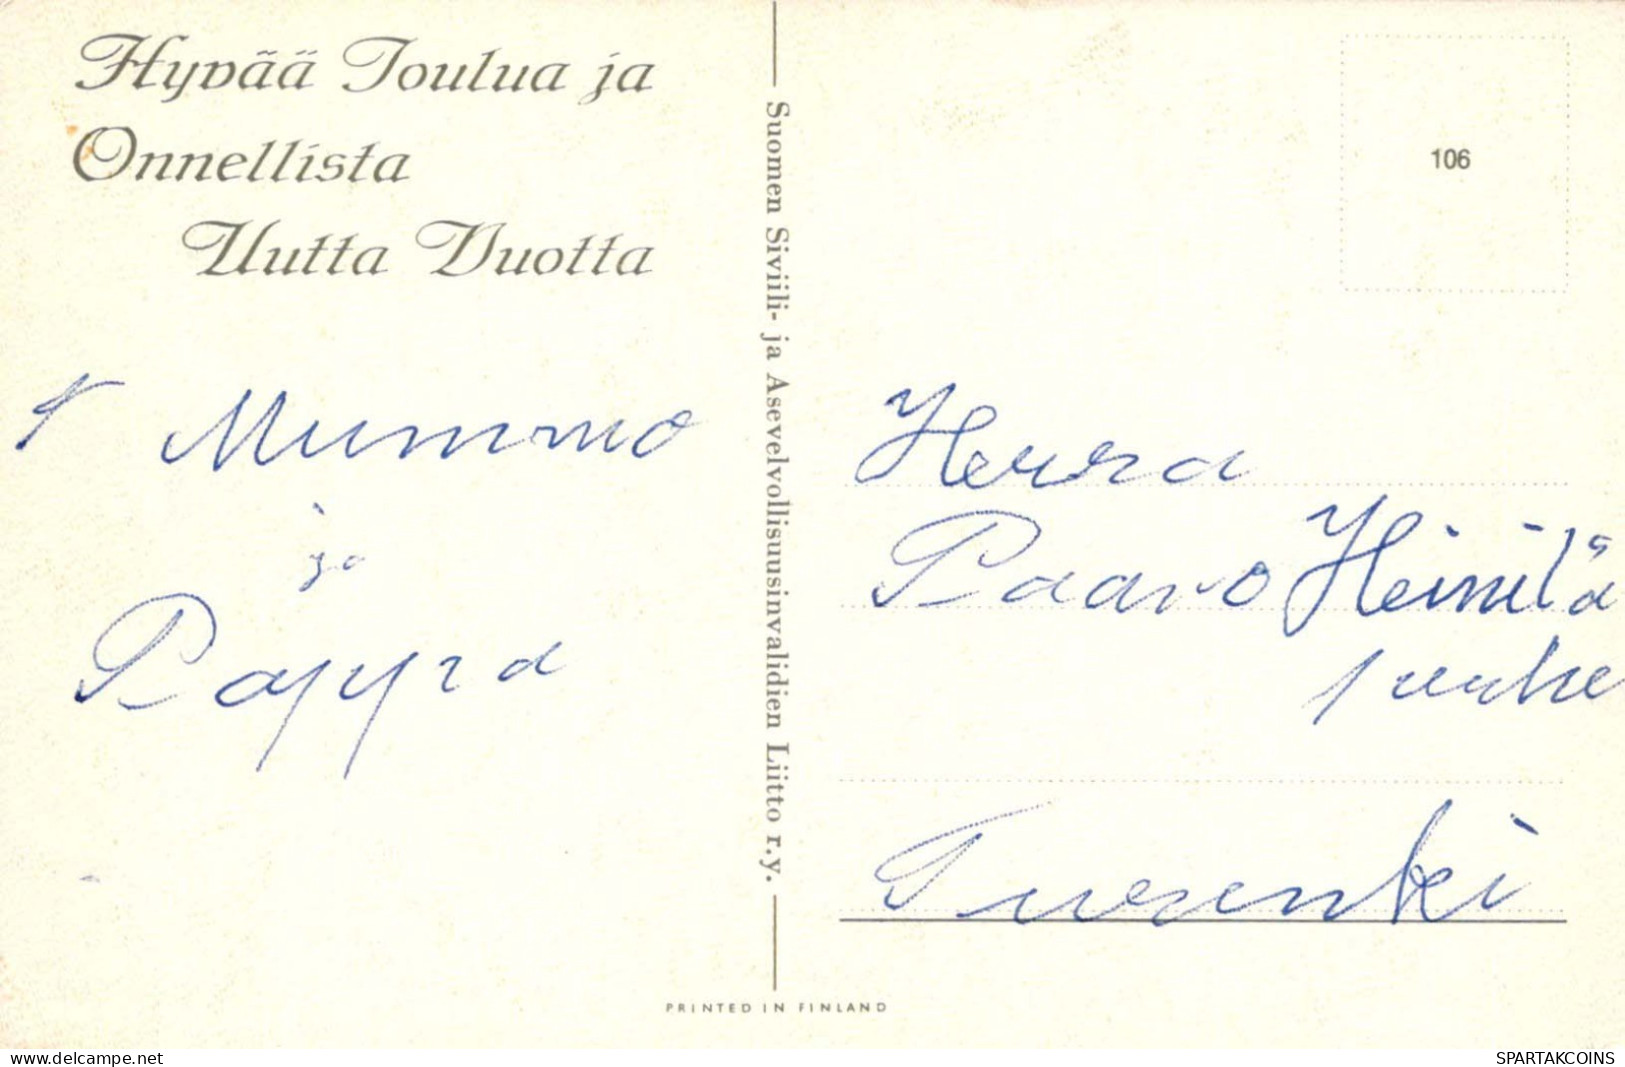 Hyvää Joulua ja
Onnellista
Uutta Vuotta
Mummo
ja
Pappa
Suomen Siviili- ja Asevelvollisuusinvalidien Liitto r.y.
PRINTED IN FINLAND
106
Herra
Paavo Heinilä
perhe
Turenki
delcampe.net
SPARTAKCOINS